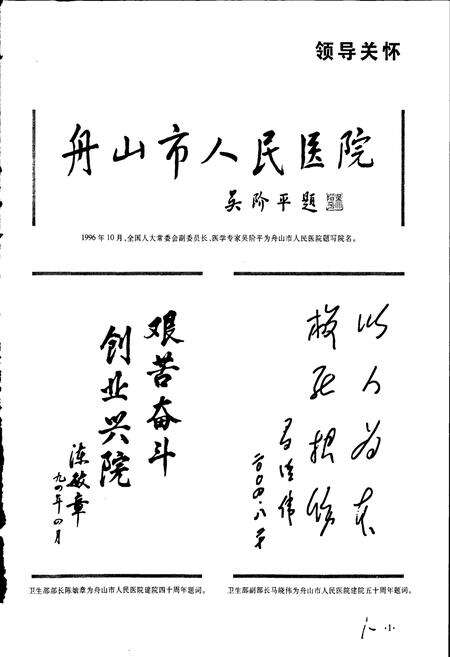 领导关怀
舟山市人民医院
吴阶平题
1996年10月,全国人大常委会副委员长、医学专家吴阶平为舟山市人民医院题写院名。
艰苦奋斗
创业兴院
陈敏章
九四年四月
以人为本
救死扶伤
马晓伟
二〇〇四.八
卫生部部长陈敏章为舟山市人民医院建院四十周年题词。
卫生部副部长马晓伟为舟山市人民医院建院五十周年题词。